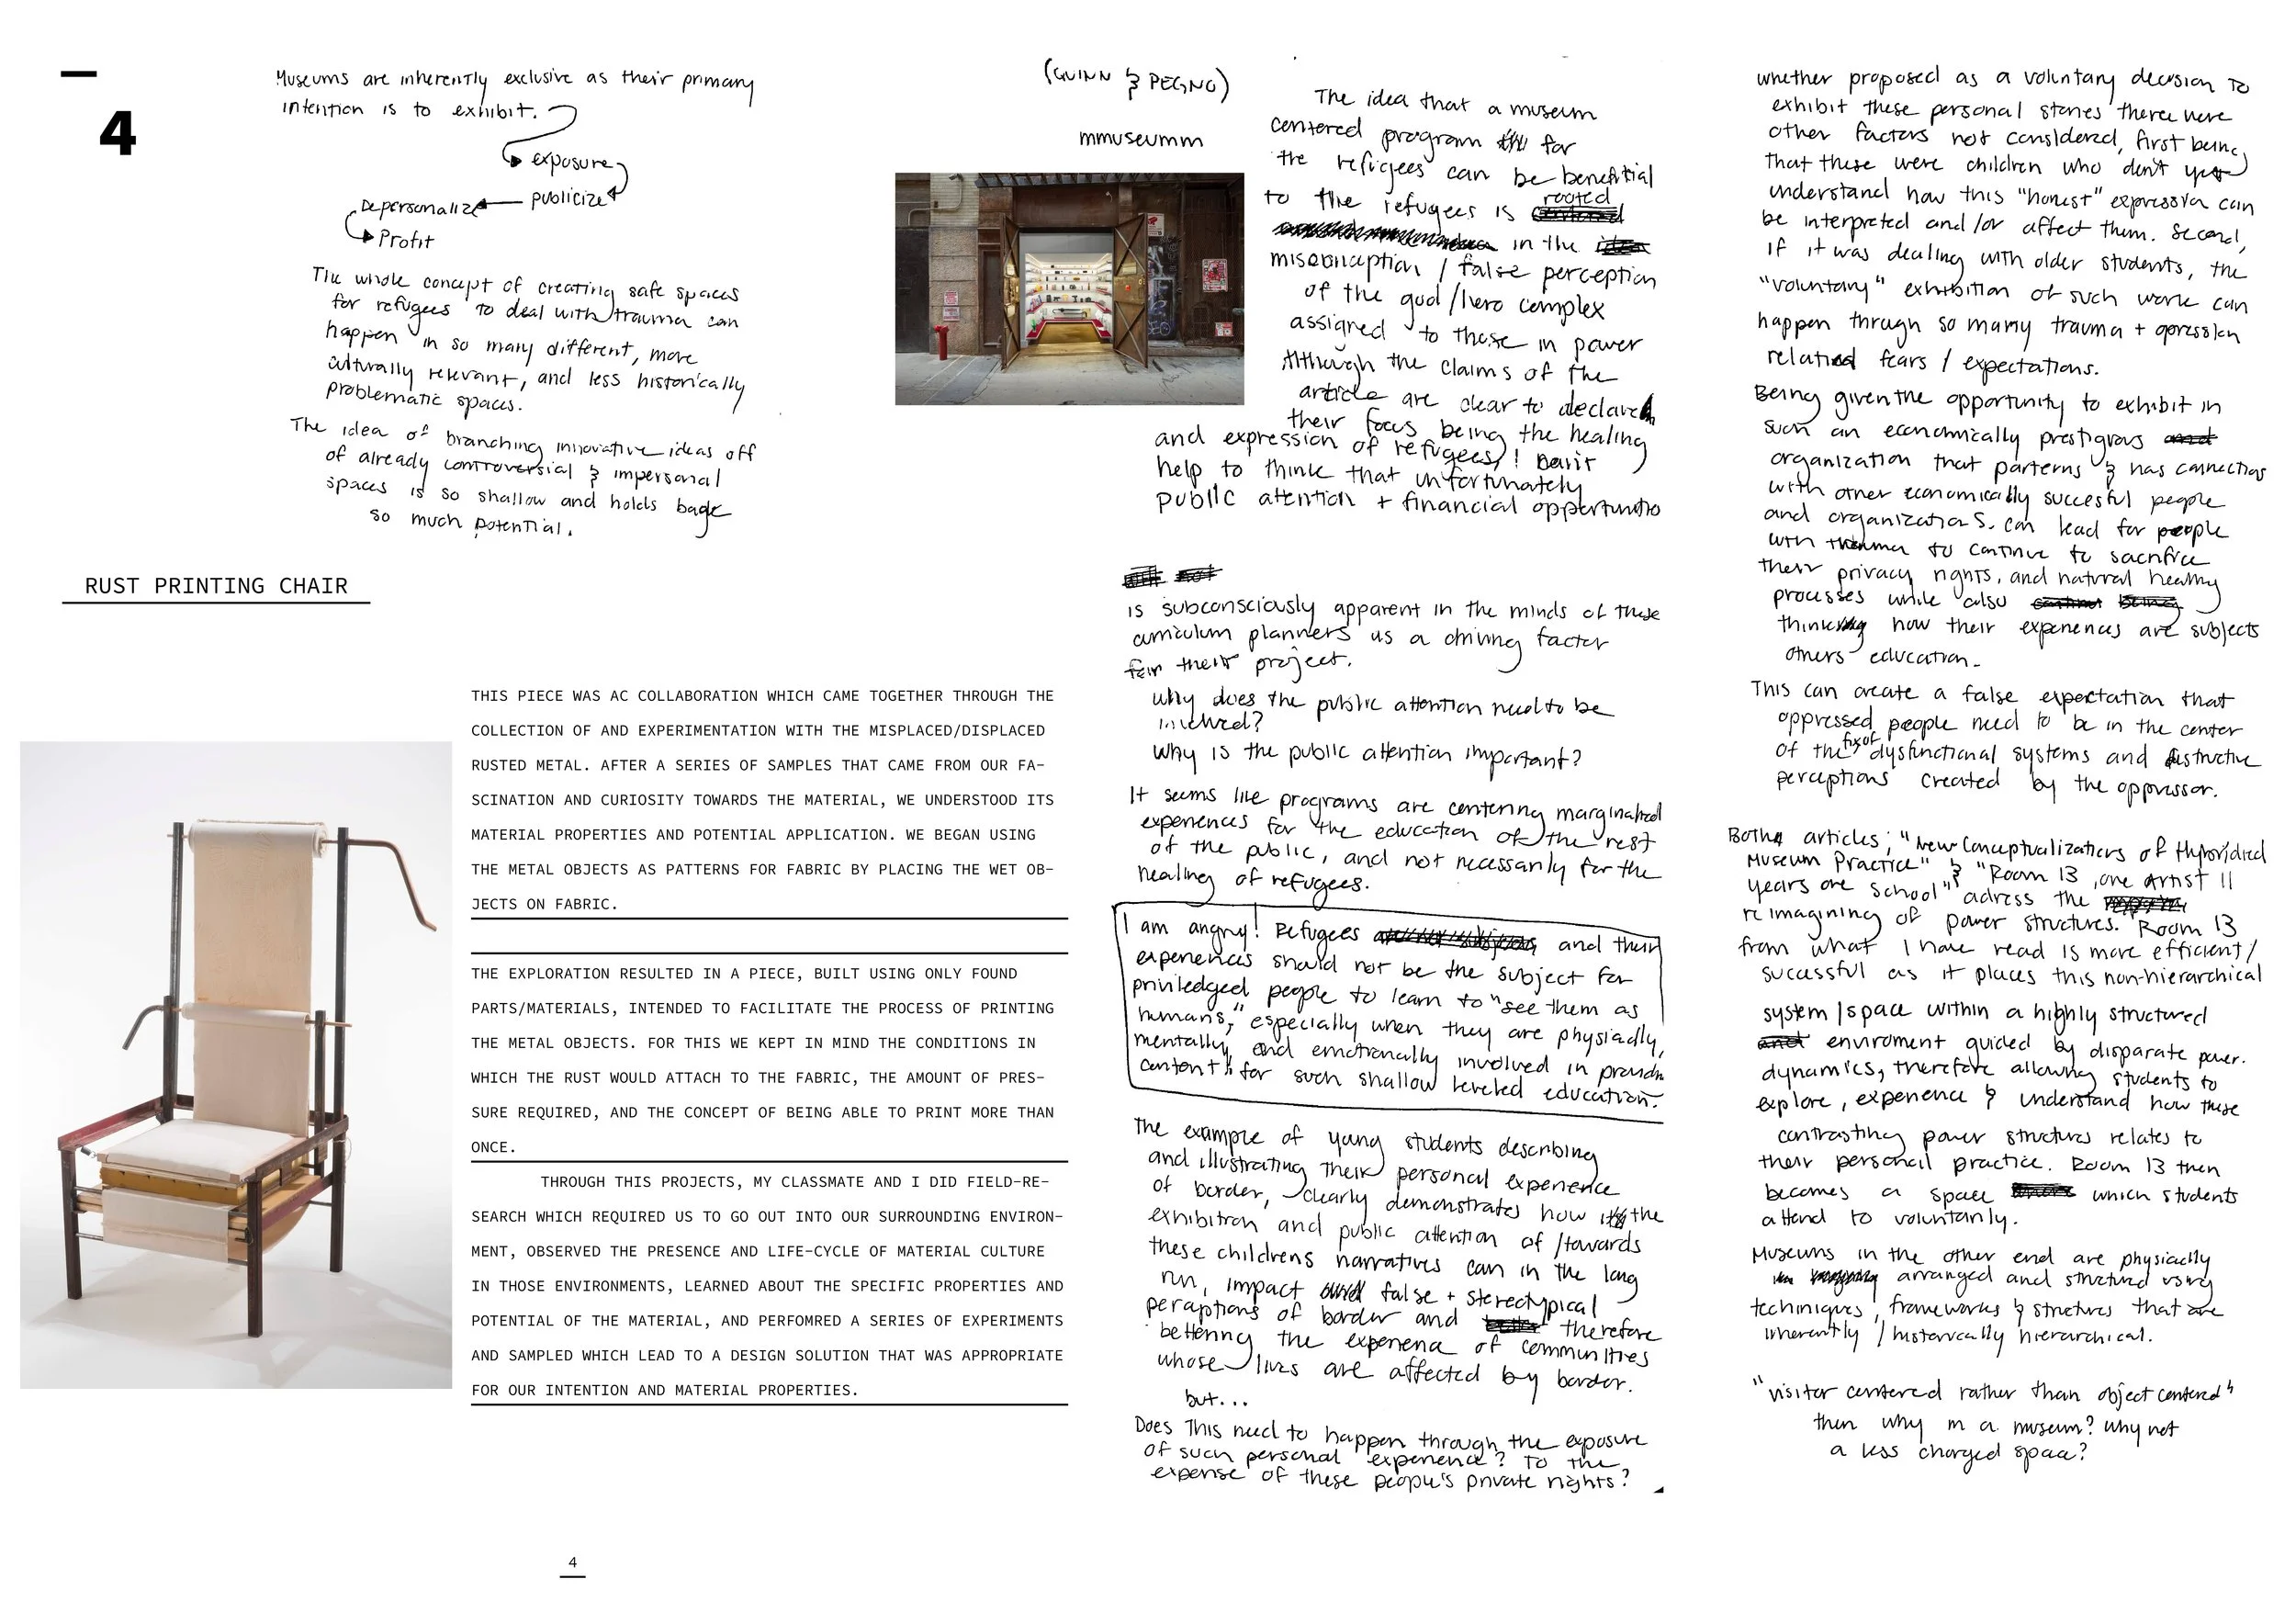 4
Museums are inherently exclusive as their primary
intention is to exhibit.
exposure
publicize
Depersonalize
Profit
The whole concept of creating safe spaces
for refugees to deal with trauma can
happen in so many different, more
culturally relevant, and less historically
problematic spaces.
The idea of branching innovative ideas off
of already controversial & impersonal
spaces is so shallow and holds back
so much potential.
RUST PRINTING CHAIR
THIS PIECE WAS AC COLLABORATION WHICH CAME TOGETHER THROUGH THE
COLLECTION OF AND EXPERIMENTATION WITH THE MISPLACED/DISPLACED
RUSTED METAL. AFTER A SERIES OF SAMPLES THAT CAME FROM OUR FA-
SCINATION AND CURIOSITY TOWARDS THE MATERIAL, WE UNDERSTOOD ITS
MATERIAL PROPERTIES AND POTENTIAL APPLICATION. WE BEGAN USING
THE METAL OBJECTS AS PATTERNS FOR FABRIC BY PLACING THE WET OB-
JECTS ON FABRIC.
THE EXPLORATION RESULTED IN A PIECE, BUILT USING ONLY FOUND
PARTS/MATERIALS, INTENDED TO FACILITATE THE PROCESS OF PRINTING
THE METAL OBJECTS. FOR THIS WE KEPT IN MIND THE CONDITIONS IN
WHICH THE RUST WOULD ATTACH TO THE FABRIC, THE AMOUNT OF PRES-
SURE REQUIRED, AND THE CONCEPT OF BEING ABLE TO PRINT MORE THAN
ONCE.
THROUGH THIS PROJECTS, MY CLASSMATE AND I DID FIELD-RE-
SEARCH WHICH REQUIRED US TO GO OUT INTO OUR SURROUNDING ENVIRON-
MENT, OBSERVED THE PRESENCE AND LIFE-CYCLE OF MATERIAL CULTURE
IN THOSE ENVIRONMENTS, LEARNED ABOUT THE SPECIFIC PROPERTIES AND
POTENTIAL OF THE MATERIAL, AND PERFOMRED A SERIES OF EXPERIMENTS
AND SAMPLED WHICH LEAD TO A DESIGN SOLUTION THAT WAS APPROPRIATE
FOR OUR INTENTION AND MATERIAL PROPERTIES.
4
(GUINN & PEGNO)
mmuseumm
The idea that a museum
centered program for
the refigees can be benefitial
to the refugees is rooted
in the
misconception / false perception
of the god/hero complex
assigned to those in power
Although the claims of the
article are clear to declare
their focus being the healing
and expression of refugees, I
help to think that unfortunately
public attention + financial
is subconsciously apparent in the minds of these
curriculum planners as a driving factor
for their project.
why does the public attention need to be
involved?
Why is the public attention important?
It seems like programs are centering
experiences for the education of the rest
of the public, and not necessarily for the
healing of refugees.
I am angry! Refugees and their
experiences should not be the subject for
priviledged people to learn to "see them as
humans," especially when they are physically,
mentally, and emotionally involved in
content for such shallow leveled education.
The example of young students describing
and illustrating their personal experience
of border, clearly demonstrates how the
exhibition and public attention of/towards
these childrens narratives can in the long
run, impact false + stereotypical
perceptions of border and therefore
bettering the experience of communities
whose lives are affected by border.
but...
Does This need to happen through the exposure
of such personal experience? To the
expense of these people's private rights?
whether proposed as a voluntary decision to
exhibit these personal stories there were
other factors not considered, first being
that these were children who don't yet
understand how this "honest" expression can
be interpreted and/or affect them. Second,
if it was dealing with older students, the
"voluntary" exhibition of such work can
happen through so many trauma + opression
related fears / expectations.
Being given the opportunity to exhibit in
such an economically prestigious
organization that parterns & has connections
with other economically succesful people
and organizations. can lead for people
with trauma to continue to sacrifice
their privacy rights, and natural healing
processes while also
thinking how their experiences are subjects
others education.
This can create a false expectation that
oppressed people need to be in the center
of the fix of dysfunctional systems and
perceptions created by the oppressor.
Both articles; "New Conceptualizations of
Museum Practice" & "Room 13, one Artist 11
years one School" adress the
reimagining of power structures. Room 13
from what I have read is more efficient/
sucessful as it places this non-hierarchical
system/space within a highly structured
enviroment guided by disparate power.
dynamics, therefore allowing students to
explore, experience & understand how these
contrasting power structures relates to
their personal practice. Room 13 then
becomes a space which students
attend to voluntarily.
Museums in the other end are physically
arranged and structured using
techniques, frameworks & structures that are
inherently / historically hierarchical.
"visitor centered rather than object centered"
then why in a museum? why not
a less charged space?